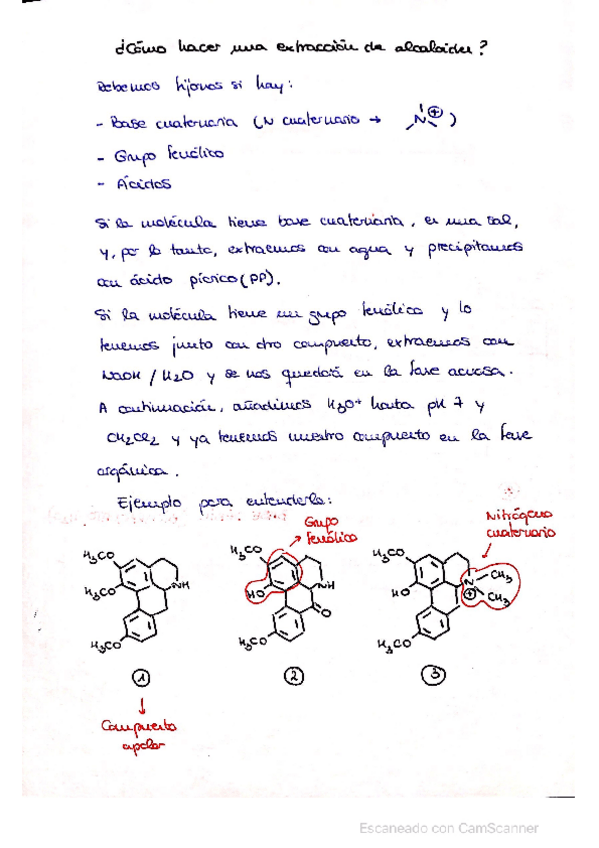 ¿Cómo hacer una extracción de alcaloides?
Debemos fijarnos si hay:
- Base cuaternaria (N cuaternario → N⊕)
- Grupo fenólico
- Ácidos
Si la molécula tiene base cuaternaria, es una sal,
y, por lo tanto, extraemos con agua y precipitamos
con ácido pícrico (PP).
Si la molécula tiene un grupo fenólico y lo
tenemos junto con otro compuesto, extraemos con
NaOH / H2O y se nos quedará en la fase acuosa.
A continuación, añadimos H3O+ hasta pH 7 y
CH2Cl2 y ya tenemos nuestro compuesto en la fase
orgánica.
Ejemplo para entenderlo:
Grupo
fenólico
Nitrógeno
cuaternario
H3CO
H3CO
NH
H3CO
H3CO
HO
NH
O
H3CO
H3CO
HO
N
⊕
CH3
CH3
H3CO
1
2
3
Compuesto
apolar
Escaneado con CamScanner